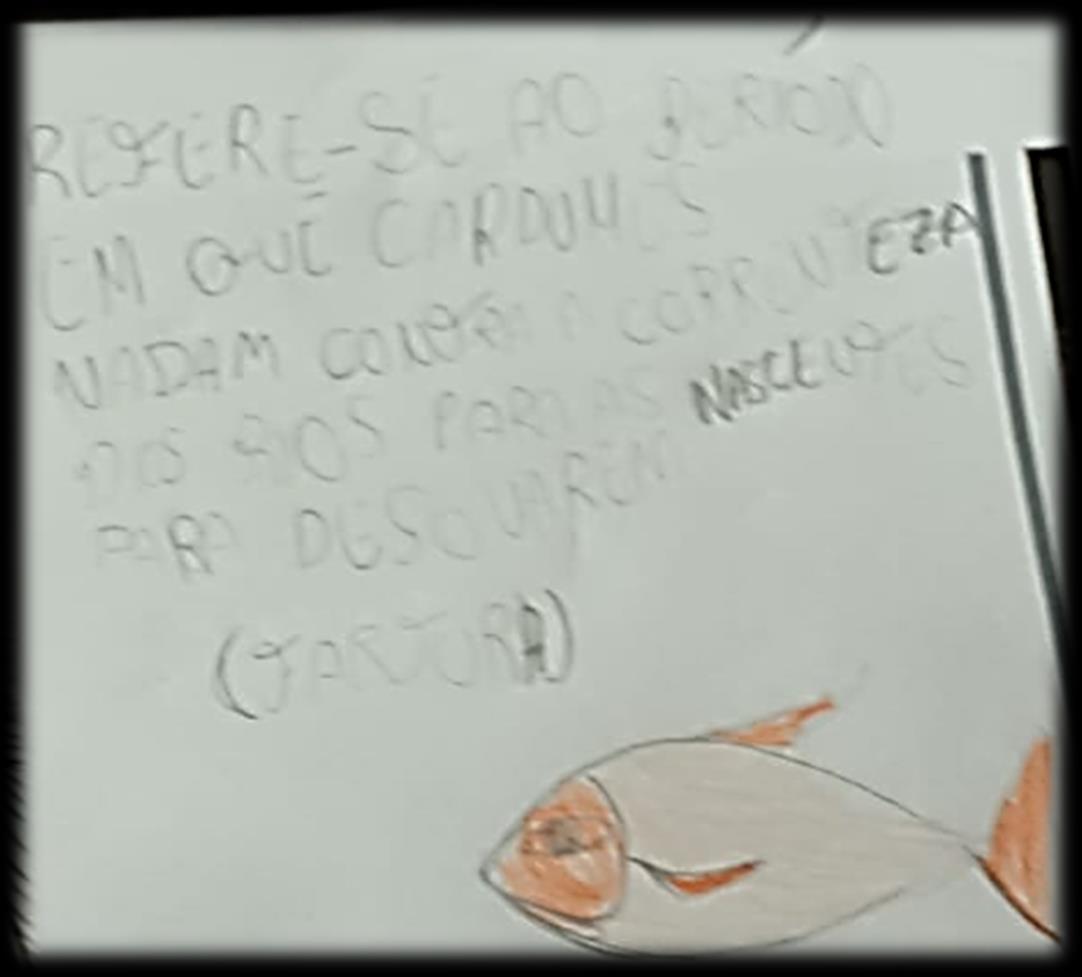 REFERE-SE AO PERÍODO
EM QUE CARDUMES
NADAM CONTRA A CORRENTEZA
DOS RIOS PARA AS NASCENTES
PARA DESOVAREM
(FARTURA)